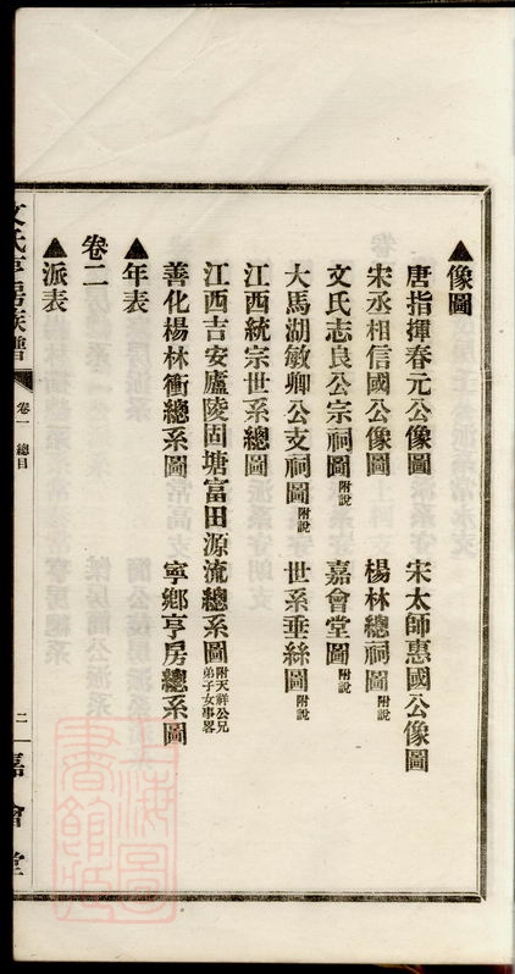 ▲像圖
唐指揮春元公像圖　宋太師惠國公像圖
宋丞相信國公像圖　楊林總祠圖附說
文氏志良公宗祠圖附說　嘉會堂圖附說
大馬湖敏卿公支祠圖附說　世系垂絲圖附說
江西統宗世系總圖
江西吉安廬陵固塘富田源流總系圖附天祥公兄弟子女事畧
善化楊林衝總系圖　寧鄉亨房總系圖
▲年表
卷二
▲派表
文氏亨房族譜　卷一　總目　二　嘉會堂
上海圖書館藏